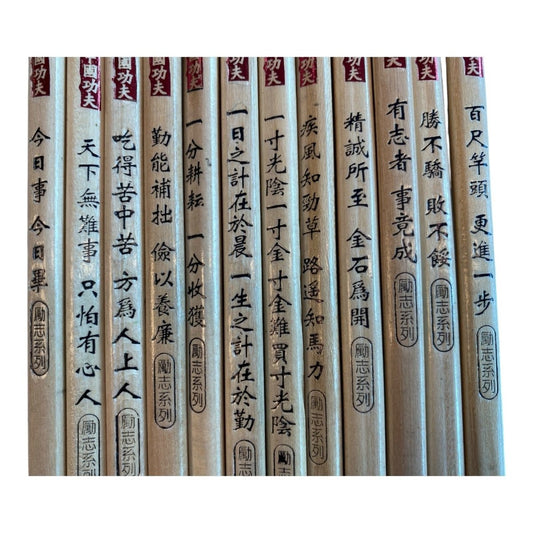 國功夫 今日事 今日畢 勵志系列
國功夫 天下無難事 只怕有心人 勵志系列
國功夫 吃得苦中苦 方為人上人 勵志系列
功夫 勤能補拙 儉以養廉 勵志系列
功夫 一分耕耘 一分收獲 勵志系列
功夫 一日之計在於晨 一生之計在於勤 勵志系
功夫 一寸光陰一寸金 寸金難買寸光陰 勵志
功夫 疾風知勁草 路遥知馬力 勵志系列
功夫 精誠所至 金石為開 勵志系列
夫 有志者 事竟成 勵志系列
功夫 勝不驕 敗不餒 勵志系列
夫 百尺竿頭 更進一步 勵志系列